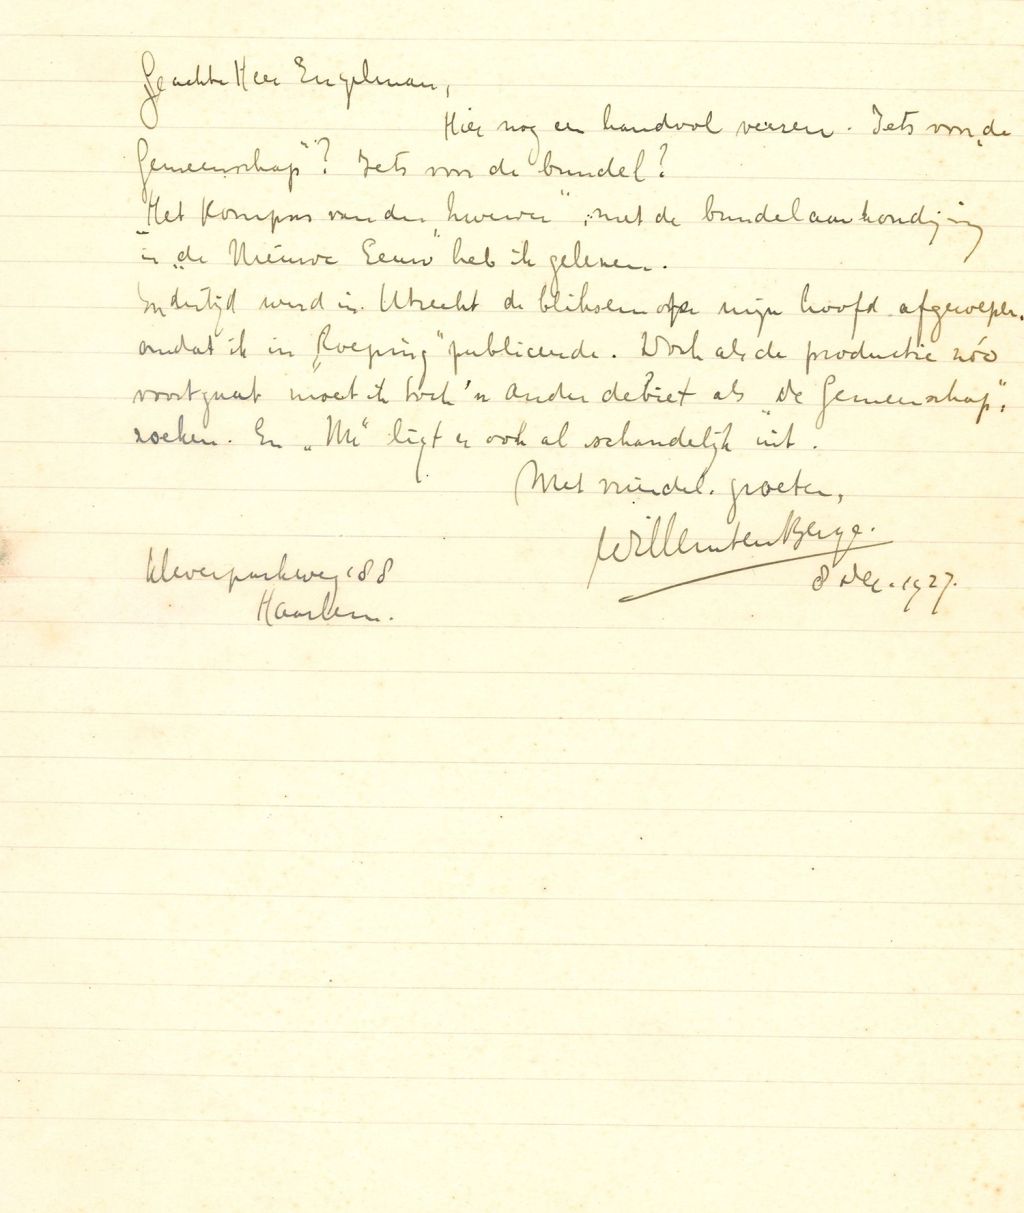 Geachte Heer Engelman,
Hier nog een handvol verzen. Iets voor „de
Gemeenschap"? Iets voor de bundel?
„Het Kompas van den Zwerver", met de bundelaankondiging
in „de Nieuwe Eeuw" heb ik gelezen.
Indertijd werd in Utrecht de bliksem op mijn hoofd afgeroepen,
omdat ik in „Roeping" publiceerde. Doch als de productie zóó
voortgaat moet ik toch 'n ander debiet als „De Gemeenschap",
zoeken. En ligt er ook al schandelijk uit.
Met vriendel. groeten,
Willem ten Berge.
8 Dec. 1927.
Kleverparkweg 188
Haarlem.